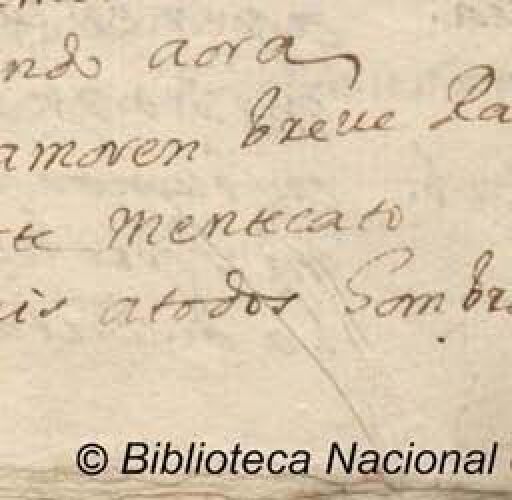 ndo aora
amoren breue Ra
te mentecato
is atodos Sombr
© Biblioteca Nacional